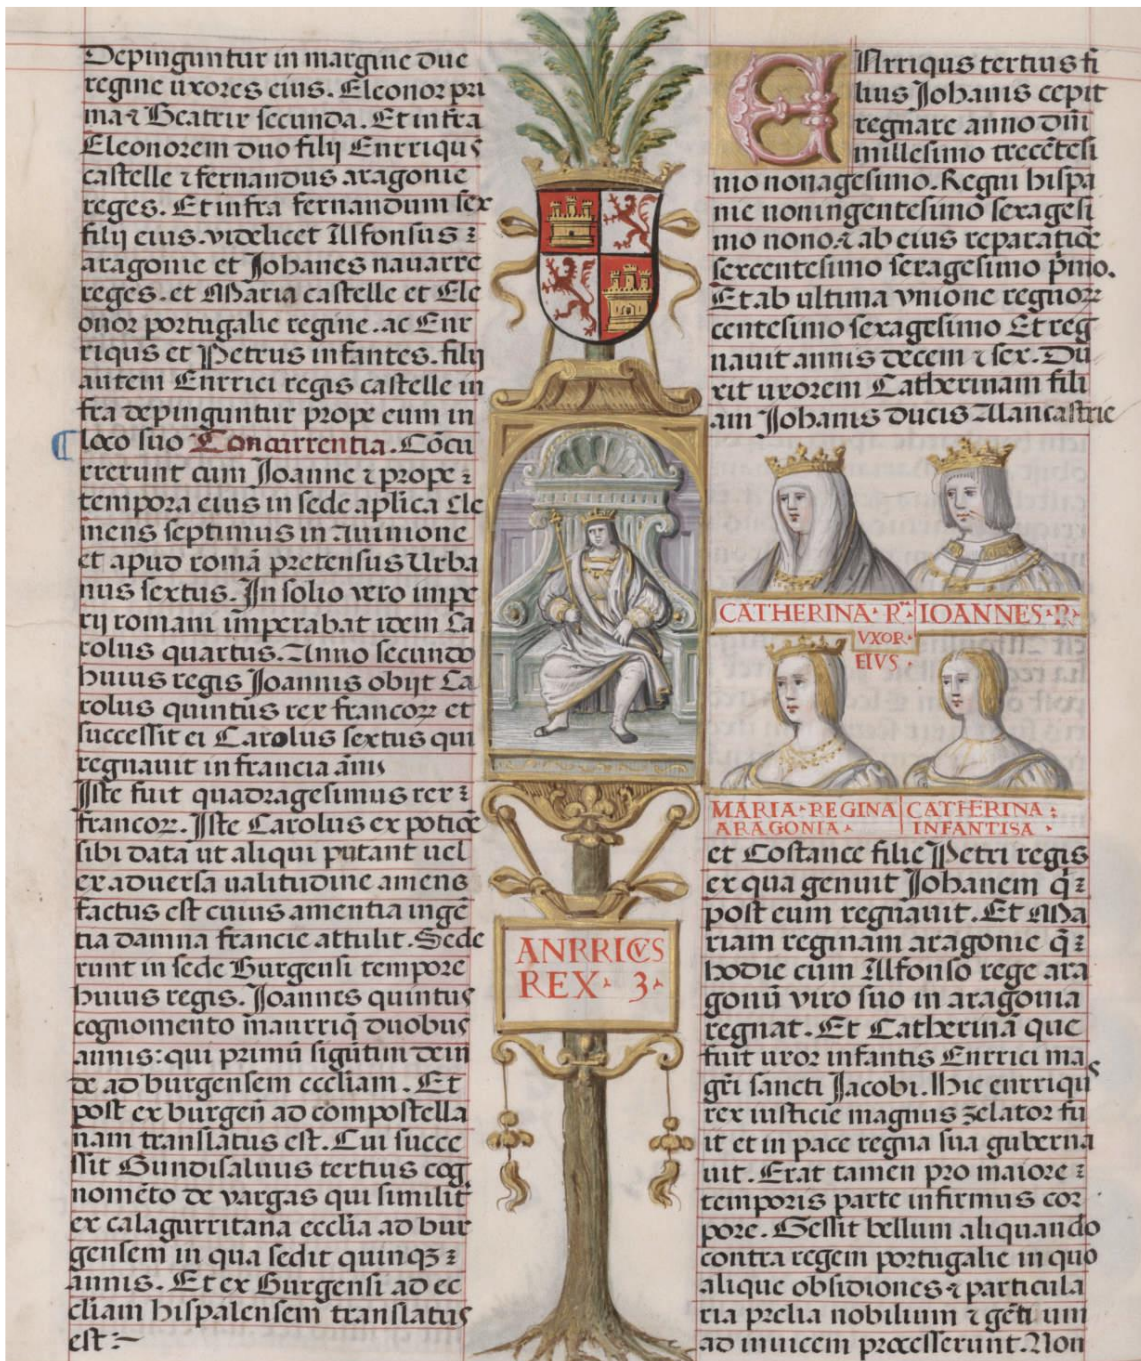 Depinguntur in margine due
regine uxores eius. Eleonor pri
ma ⁊ Beatrix secunda. Et infra
Eleonorem duo filij Enrriqus
castelle ⁊ fernandus aragonie
reges. Et infra fernandum sex
filij eius. videlicet Alfonsus ⁊
aragonie et Johanes nauarre
reges. et Maria castelle et Ele
onor portugalie regine. ac Enr
riqus et Petrus infantes. filij
autem Enrrici regis castelle in
fra depinguntur prope eum in
loco suo Concurrentia. Cōcu
rrerunt cum Joanne ⁊ prope ⁊
tempora eius in sede aplica Cle
mens septimus in Auinione
et apud romā pretensus Urba
nus sextus. In solio vero impe
rij romani imperabat idem Ca
rolus quartus. Anno secundo
huius regis Joannis obijt Ca
rolus quintus rex francoꝝ et
successit ei Carolus sextus qui
regnauit in francia ānis
Iste fuit quadragesimus rex ⁊
francoꝝ. Iste Carolus ex potiōe
sibi data ut aliqui putant uel
ex aduersa ualitudine amens
factus est cuius amentia ingē
tia damna francie attulit. Sede
runt in sede Burgensi tempore
huius regis. Joannes quintus
cognomento manrriq̄ duobus
annis: qui primū sigūtin dein
de ad burgensem eccliam. Et
post ex burgeñ ad compostella
nam translatus est. Cui succe
ssit Gundisaluus tertius cog
nomēto de vargas qui similit̄
ex calagurritana ecclia ad bur
gensem in qua sedit quinqꝫ ⁊
annis. Et ex Burgensi ad ec
cliam hispalensem translatus
est :~
ANRRICVS
REX · 3 ·
ENrriqus tertius fi
lius Johanis cepit
regnare anno dñi
millesimo trecētesi
mo nonagesimo. Regni hispa
nie noningentesimo sexagesi
mo nono. ⁊ ab eius reparatiōe
sexcentesimo sexagesimo p̄mo.
Et ab ultima vnione regnorꝝ
centesimo sexagesimo Et reg
nauit annis decem ⁊ sex. Du
xit uxorem Catherinam fili
am Johanis ducis Alancastrie
CATHERINA · Rᵃ
VXOR ·
EIVS ·
IOANNES · R ·
MARIA · REGINA
ARAGONIA ·
CATHERINA :
INFANTISA ·
et Costance filie Petri regis
ex qua genuit Johanem q̄ ⁊
post eum regnauit. Et Ma
riam reginam aragonie q̄ ⁊
hodie cum Alfonso rege ara
gonū viro suo in aragonia
regnat. Et Catherinā que
fuit uxor infantis Enrrici ma
gr̄i sancti Jacobi. Hic enrriqus
rex iusticie magnus zelator fu
it et in pace regna sua guberna
uit. Erat tamen pro maiore ⁊
temporis parte infirmus cor
pore. Gessit bellum aliquando
contra regem portugalie in quo
alique obsidiones ⁊ particula
ria prelia nobilium ⁊ gētium
ad inuicem processerunt. Non